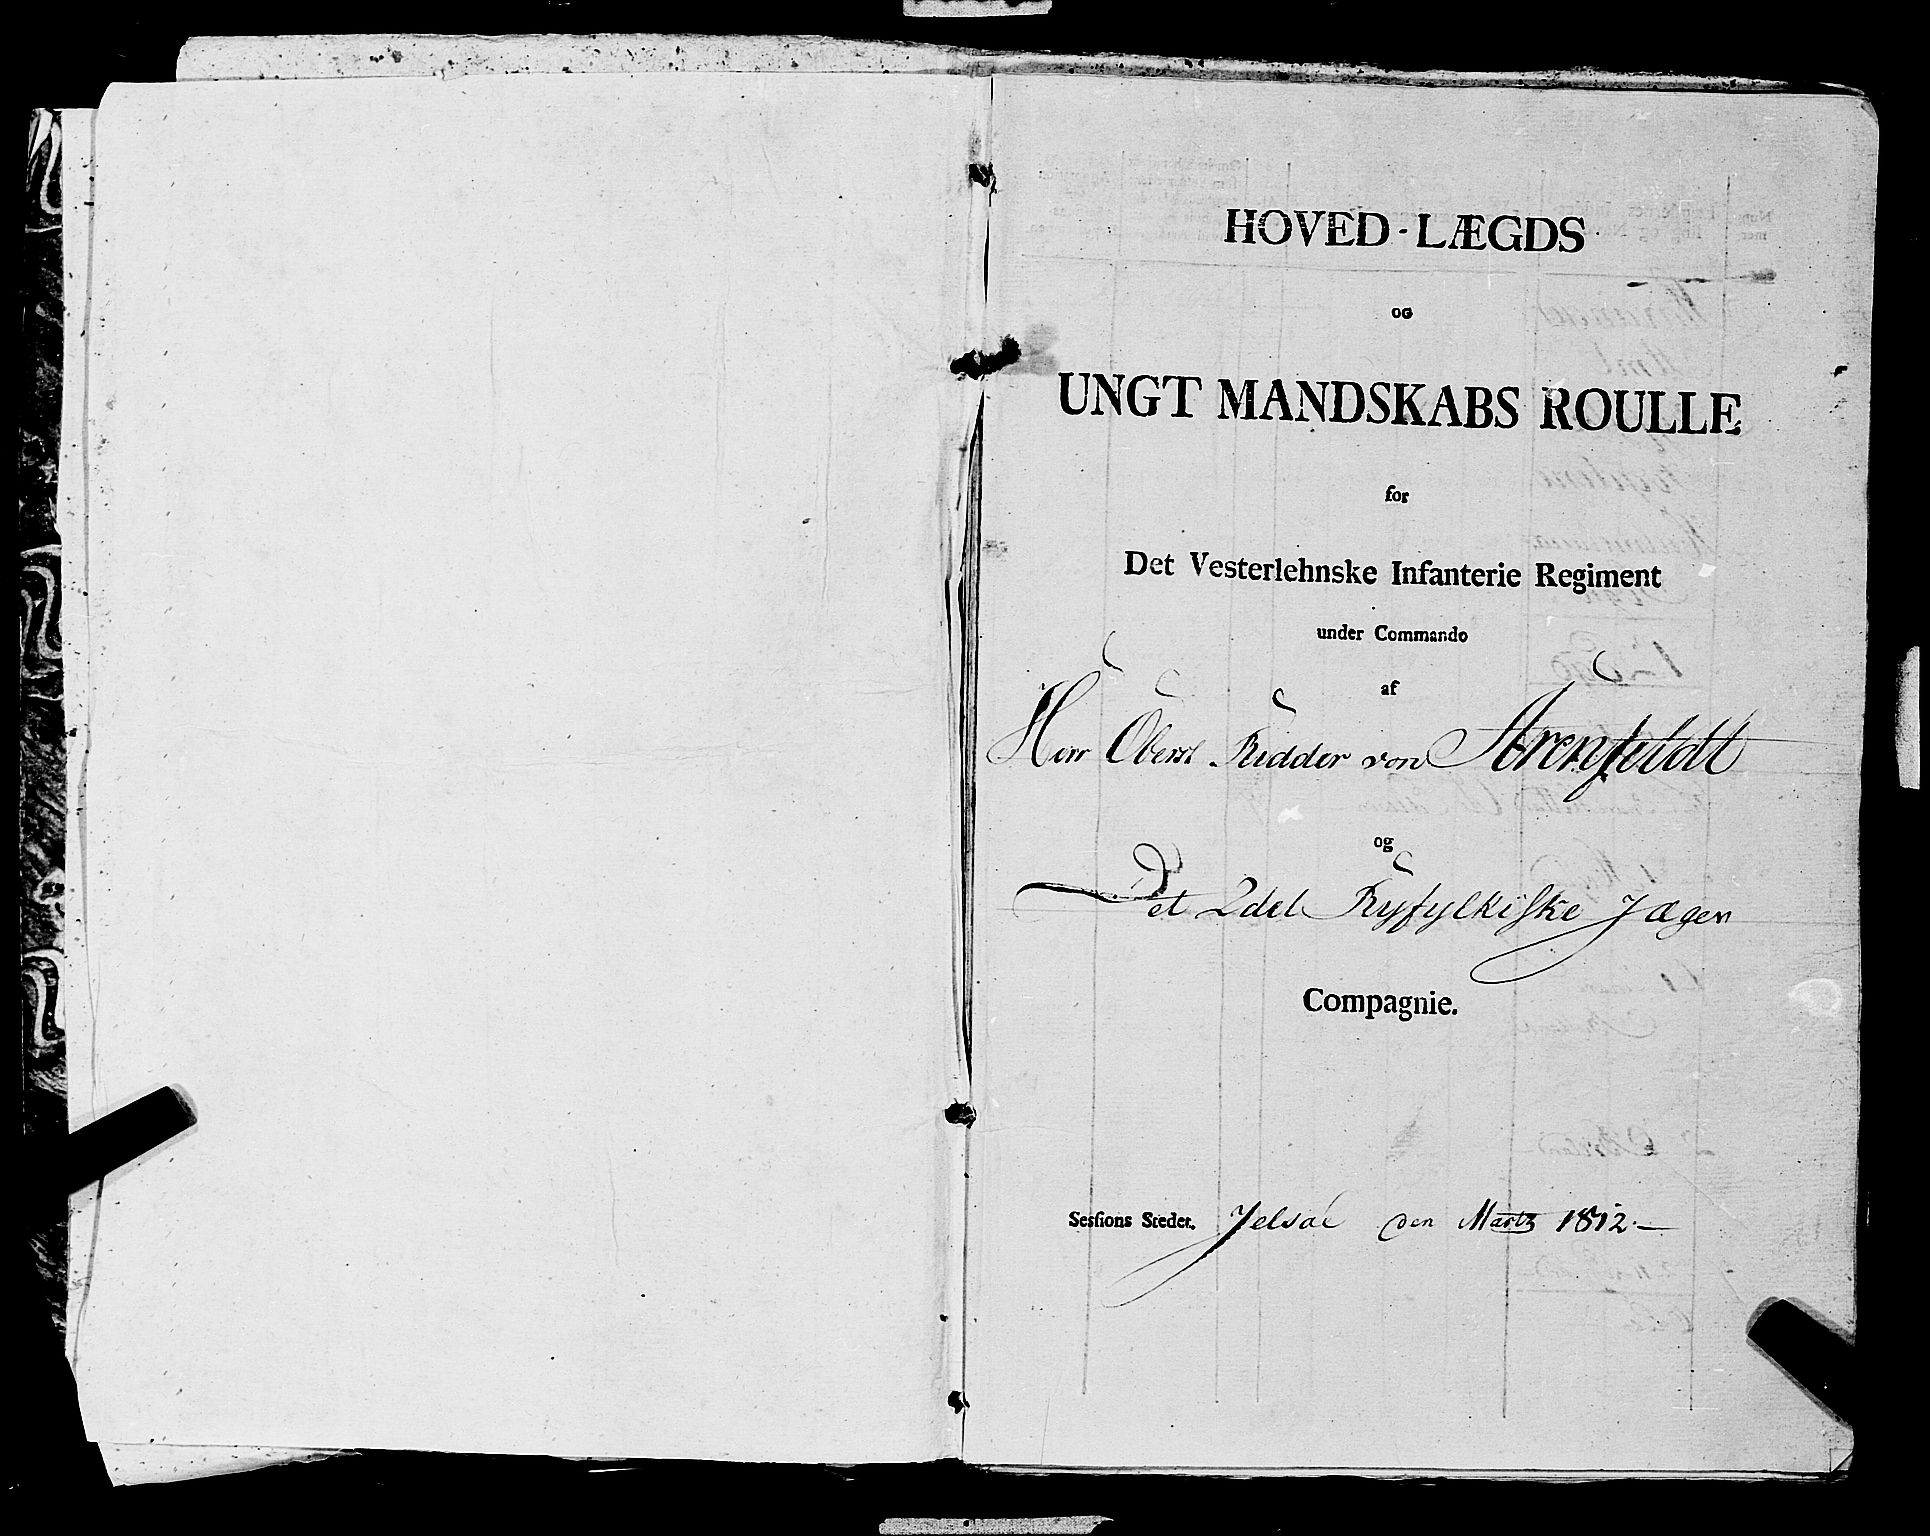 HOVED-LÆGDS
OG
UNGT MANDSKABS ROULLE
for
Det Vesterlehnske Infanterie Regiment
under Commando
af
Herr Oberst Ridder von Arenfeldt
og
Det 2det Ryfylkiske Jæger
Compagnie.
Sessions Stedet. Jelsøe den Martz 1812.—